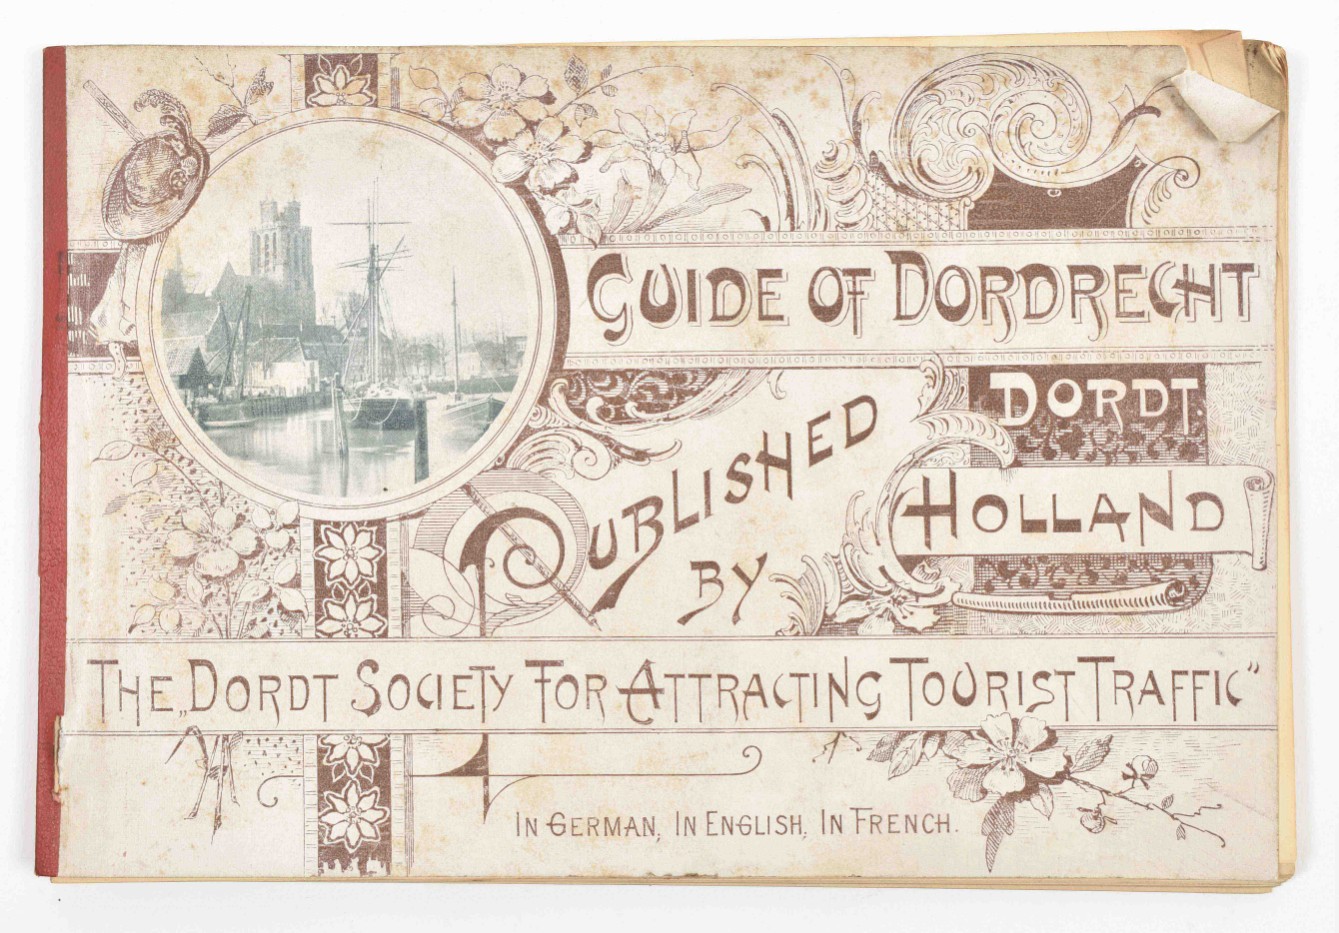 GUIDE OF DORDRECHT
DORDT.
HOLLAND
PUBLISHED
BY
THE „DORDT SOCIETY FOR ATTRACTING TOURIST TRAFFIC”
IN GERMAN, IN ENGLISH, IN FRENCH.